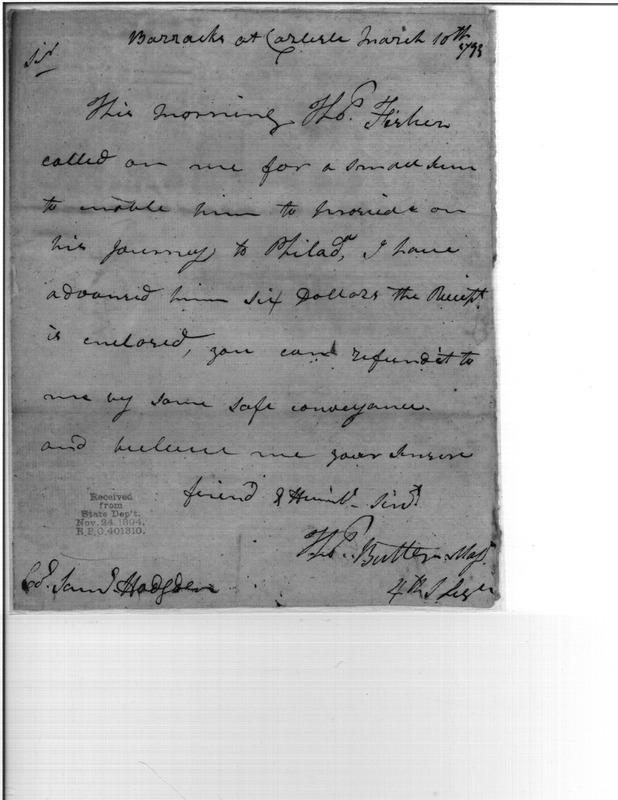 Barracks at Carlisle March 10th
1793
Sir
This morning Tho.s Fisher
called on me for a small sum
to enable him to proceed on
his Journey to Philad.a, I have
advanced him six Dollars the Receipt
is enclosed, you can refund it to
me by some safe conveyance.
and believe me your sincere
friend & Humb.l Serv.t
Tho.s Butler Maj.r
4th S Legn
Col. Sam.l Hodgdon
Received
from
State Dep't.
Nov. 24, 1894.
R.P.O. 401310.